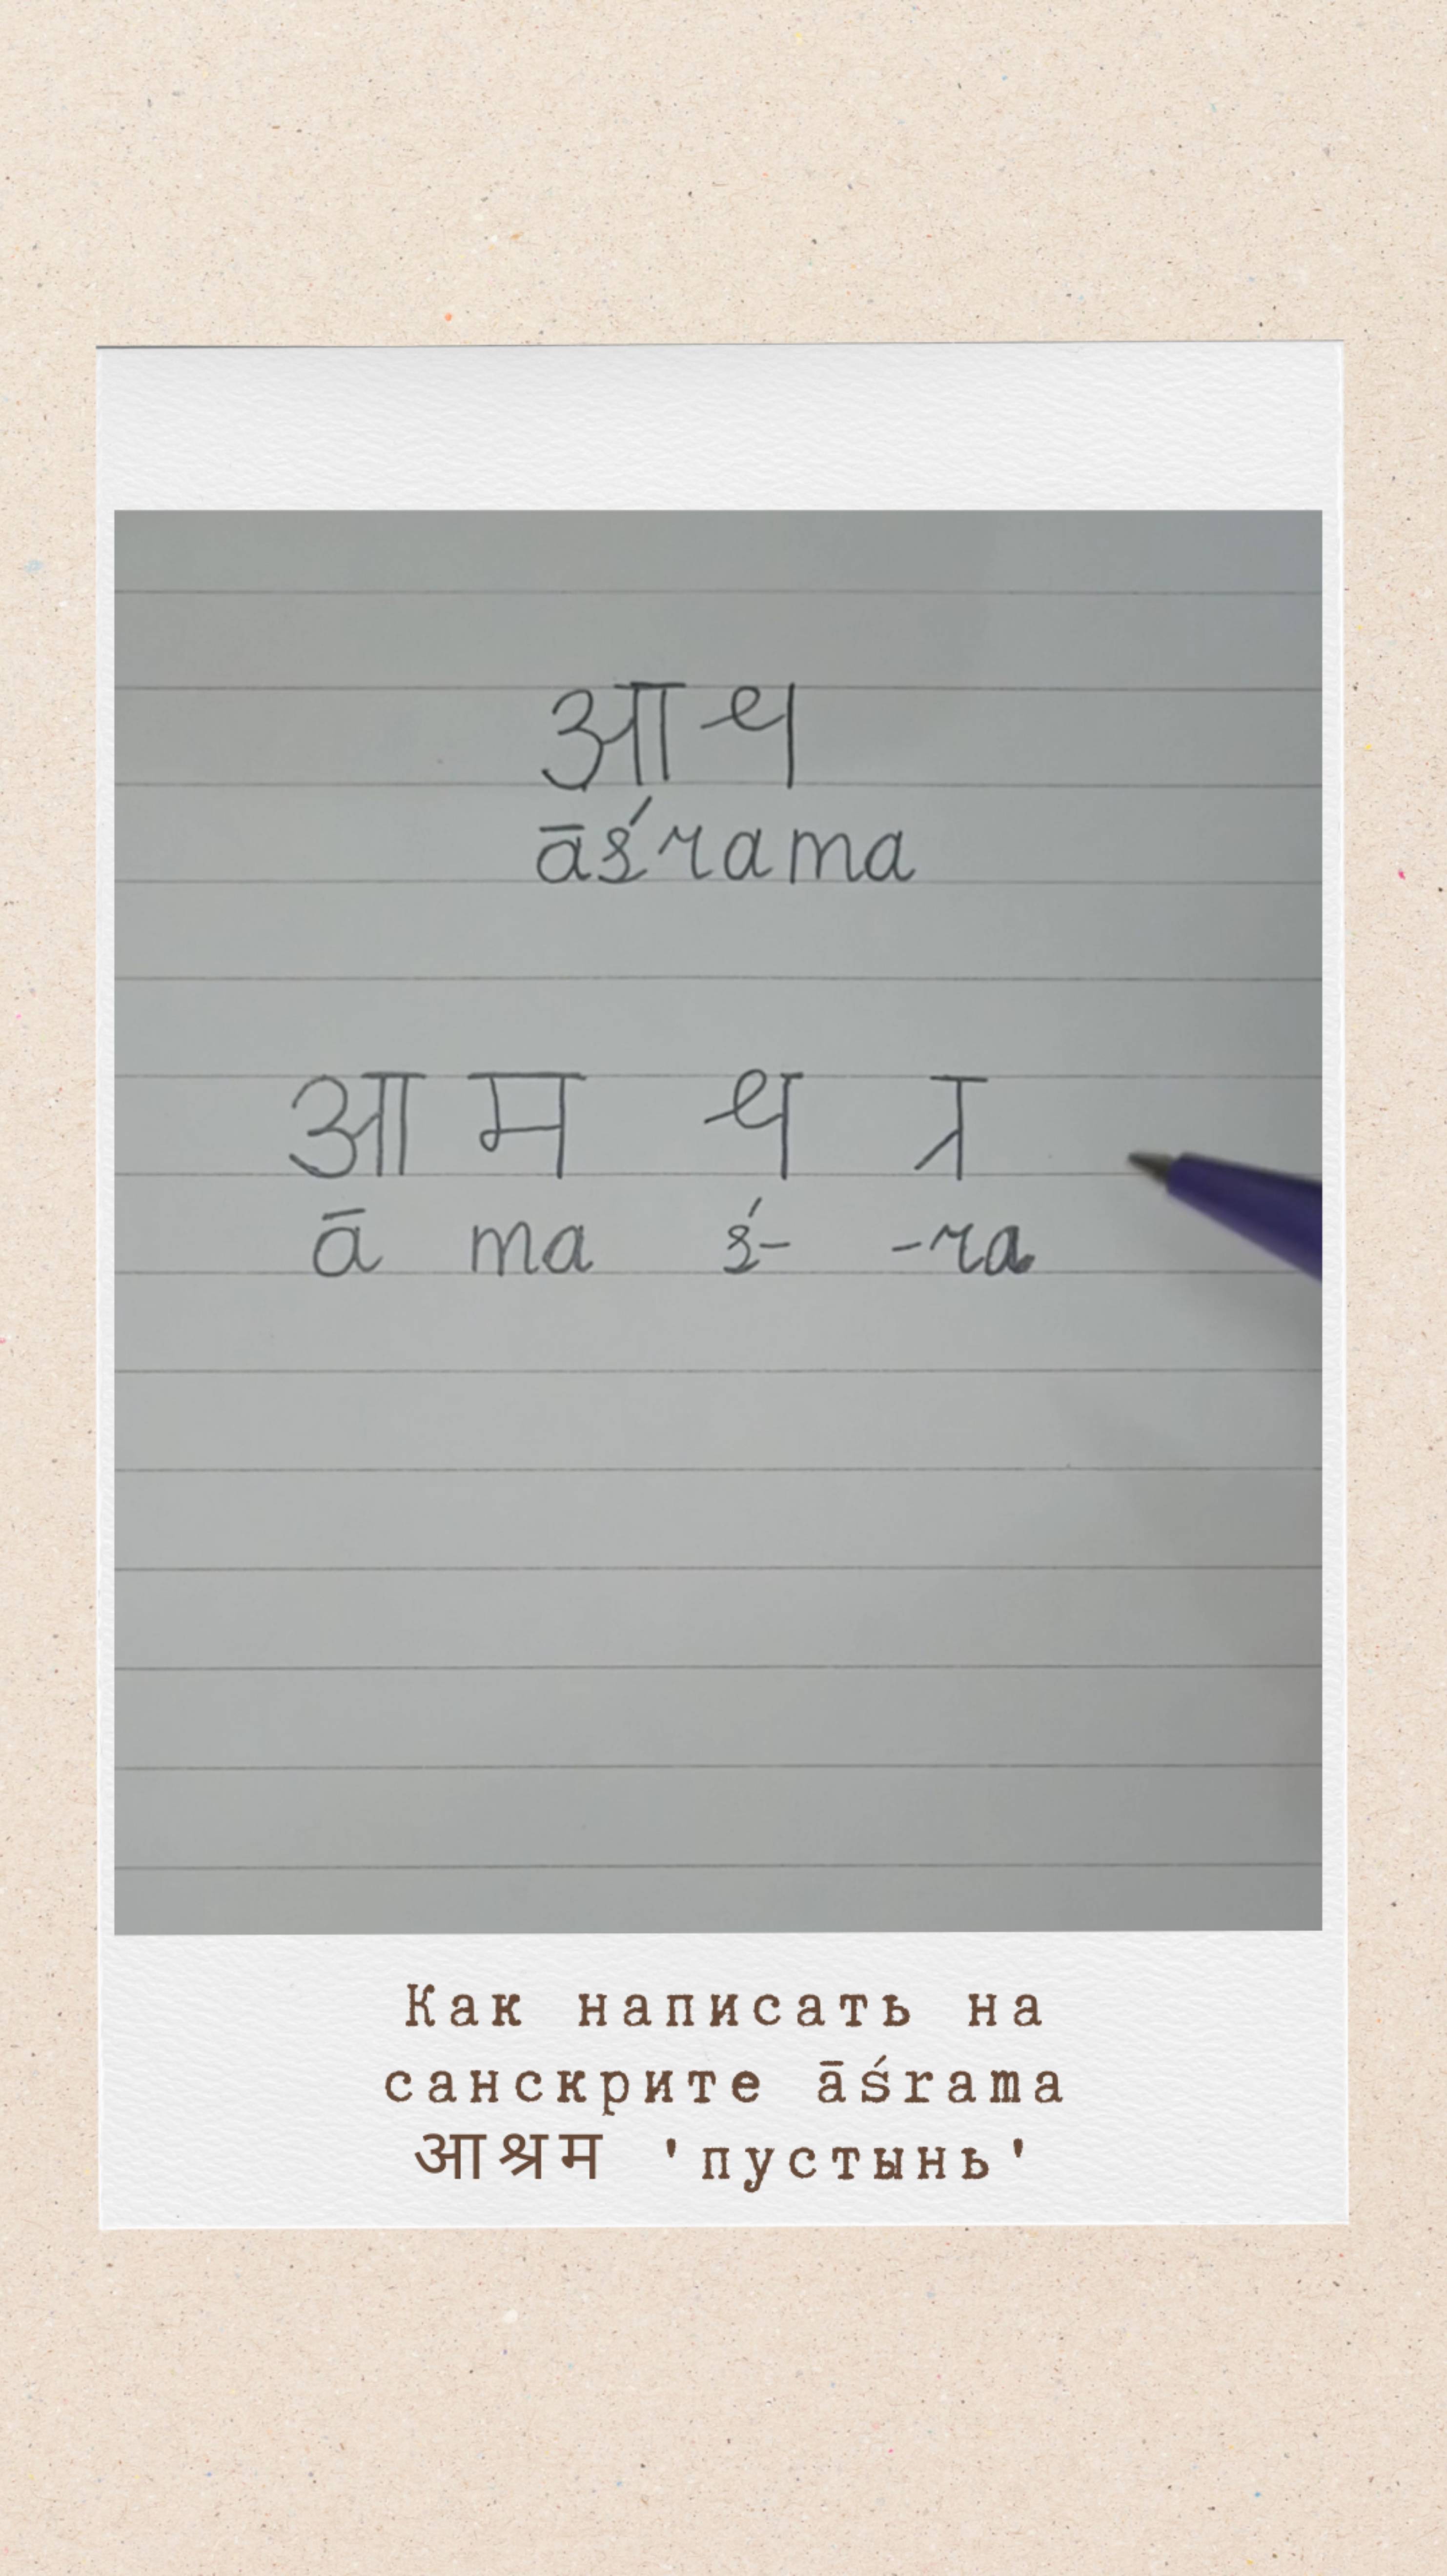 आश
āśrama
आ म श ्र
ā ma ś- -ra
Как написать на
санскрите āśrama
आश्रम 'пустынь'